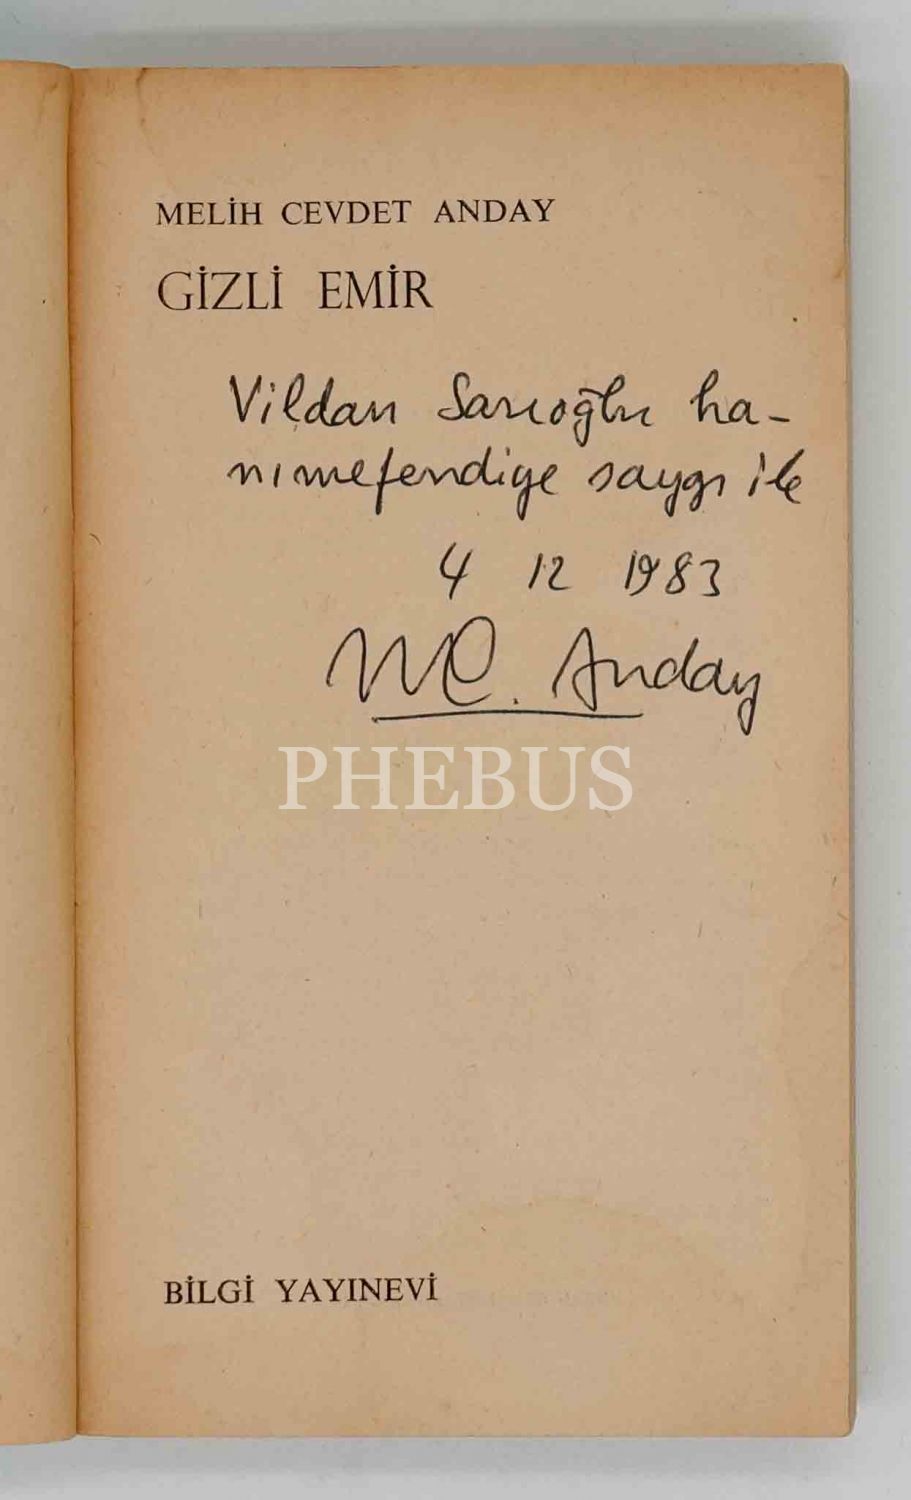 MELİH CEVDET ANDAY
GİZLİ EMİR
Vildan Sarıoğlu ha-
nımefendiye saygı ile
4 12 1983
MC. Anday
PHEBUS
BİLGİ YAYINEVİ